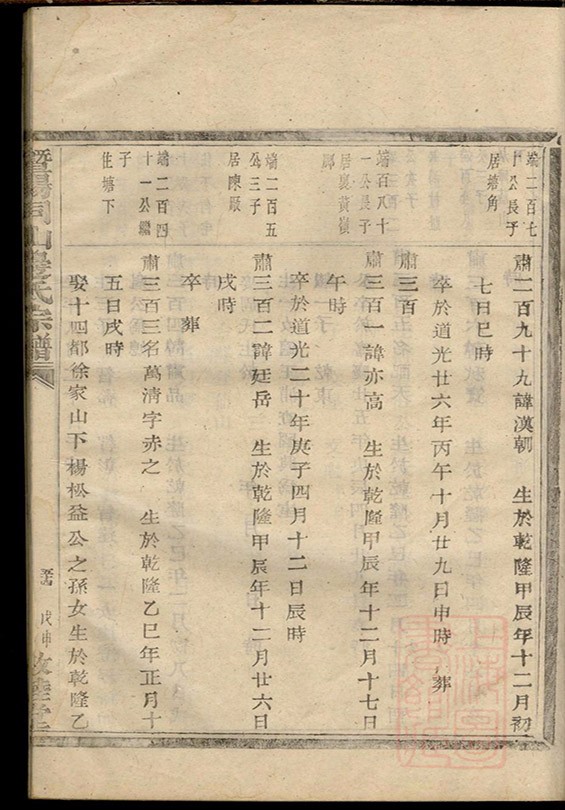 端二百七
十公長子
居塘角
肅二百九十九諱漢朝 生於乾隆甲辰年十二月初
七日巳時
卒於道光廿六年丙午十月廿九日申時 葬
肅三百
端百八十
一公長子
居裏黃嶺
肅三百一諱亦高 生於乾隆甲辰年十二月十七日
午時
卒於道光二十年庚子四月十二日辰時
端二百五
公三子
居陳
肅三百二諱廷岳 生於乾隆甲辰年十二月廿六日
戌時
卒 葬
端二百四
十一公繼
子
住塘下
肅三百三名萬清字赤之 生於乾隆乙巳年正月十
五日戌時
娶十四都徐家山下楊松益公之孫女生於乾隆乙
暨陽同山邊氏宗譜
戊申